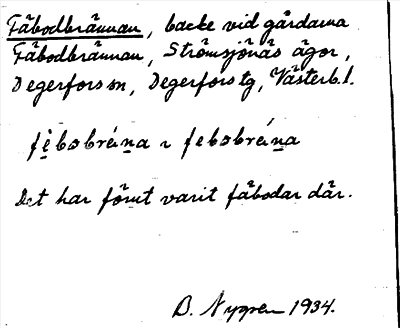 Fäbodbrännan, backe vid gårdarna
Fäbodbrännan, Strömsjönäs ägor,
Degerfors sn, Degerfors tg, Västerb. l.
Det har förut varit fäbodar där.
B. Nygren 1934.